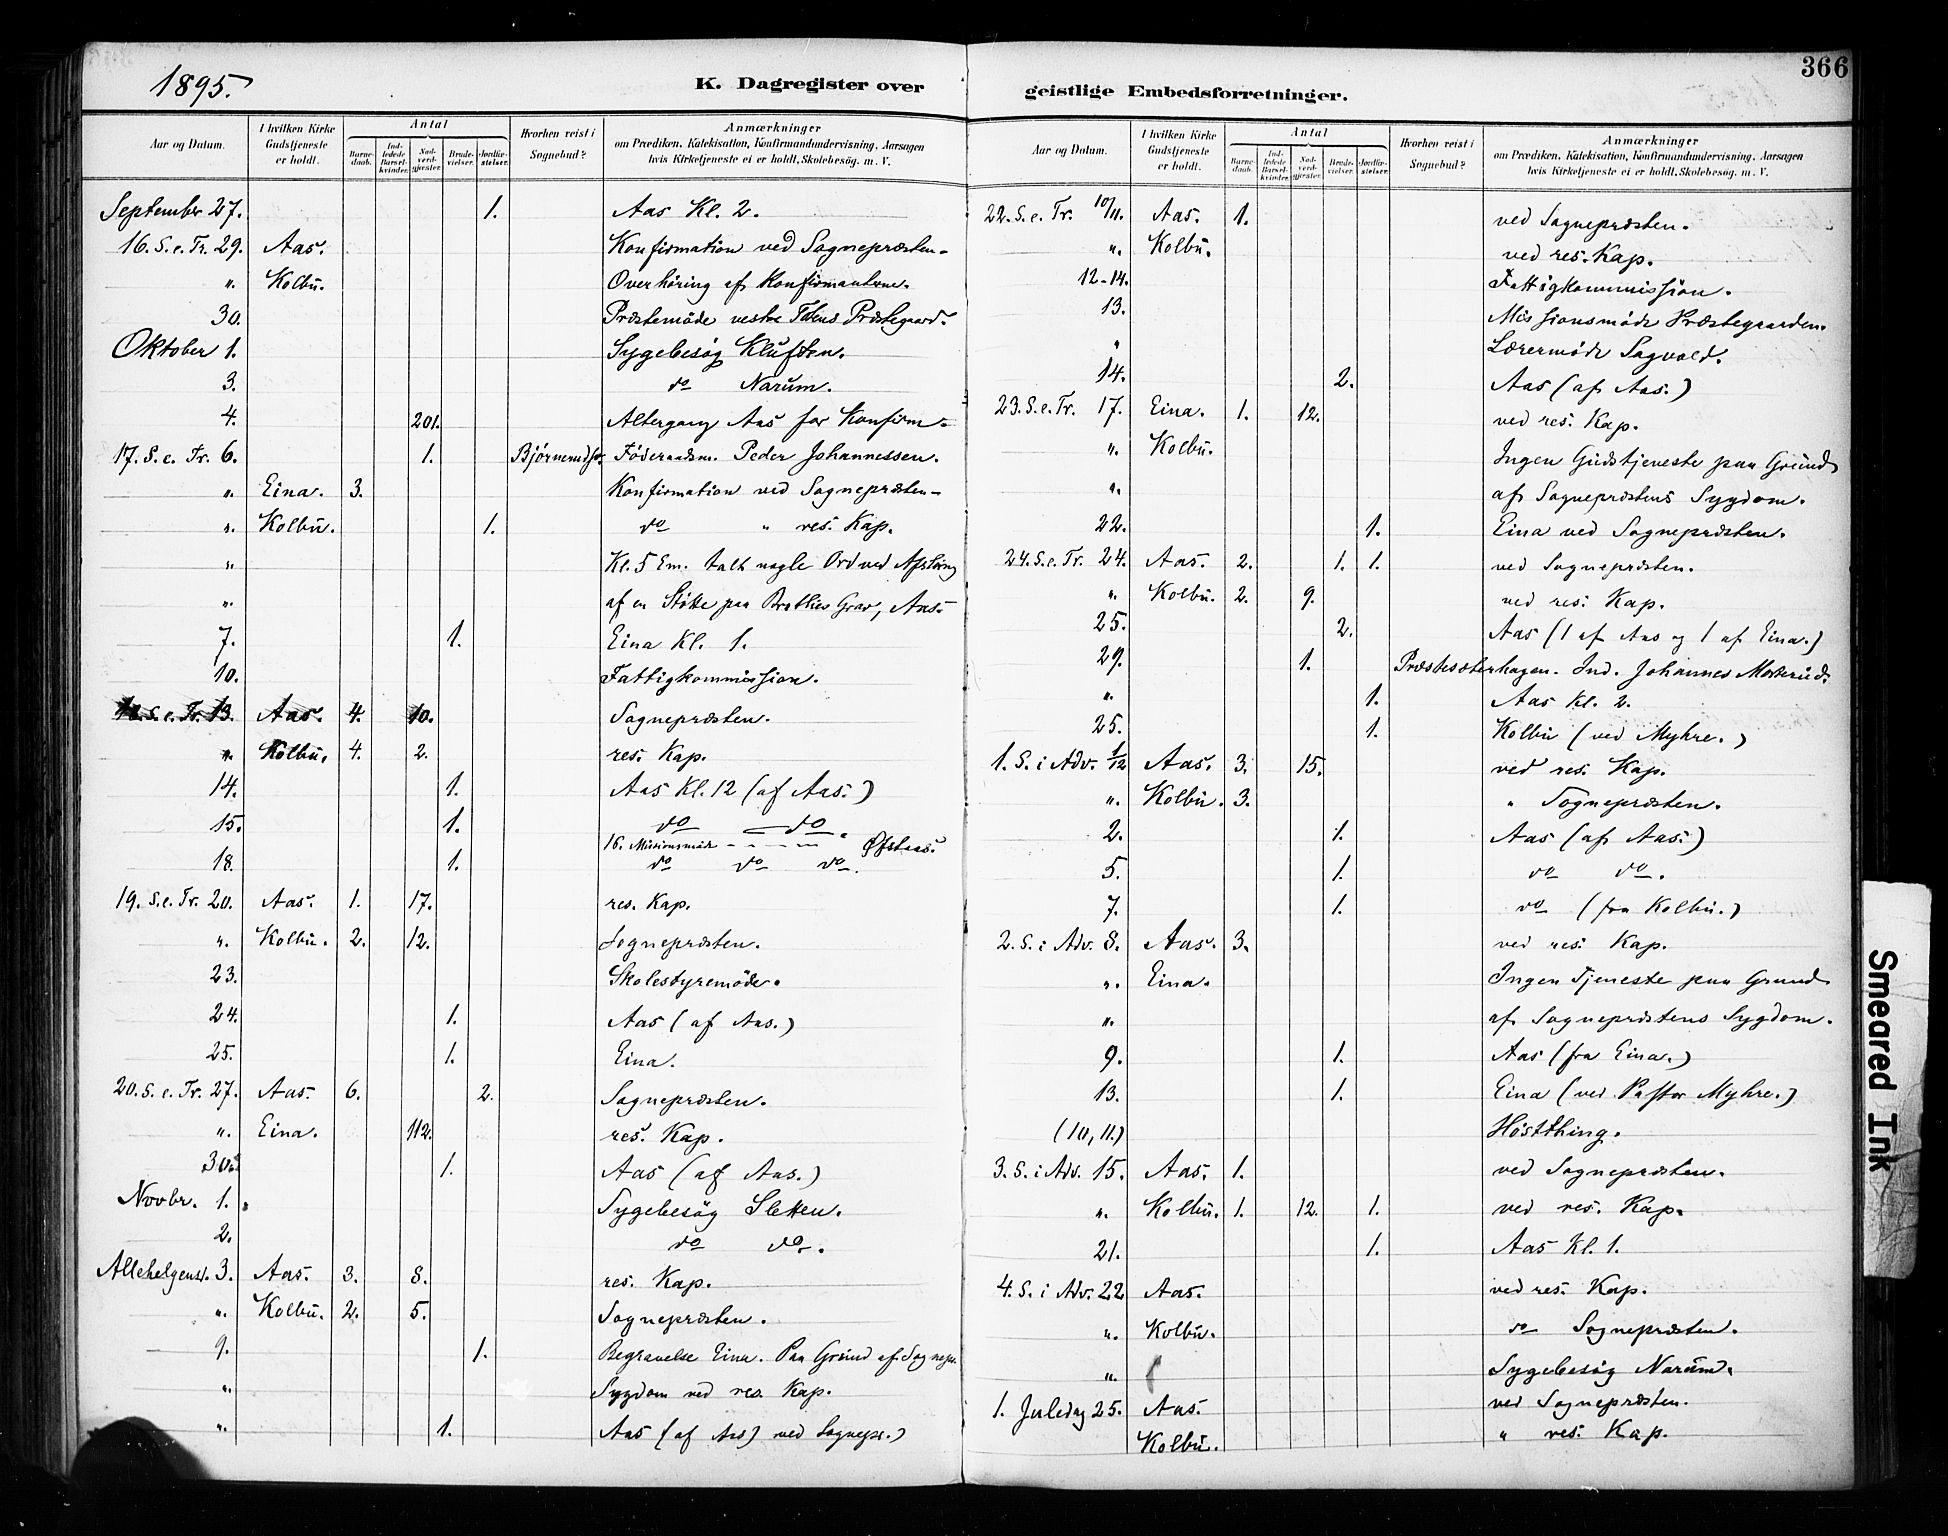 1895.
K. Dagregister over
Aar og Datum.
I hvilken Kirke Gudstjeneste er holdt.
Antal
Barnedaab.
Indledede Barselkvinder.
Nadverdgjester.
Brudevielser.
Jordfæstelser.
Hvorhen reist i Sognebud?
Anmærkninger
om Prædiken, Katekisation, Konfirmandundervisning, Aarsagen
hvis Kirketjeneste ei er holdt, Skolebesøg. m. V.
September 27. 1. Aas Kl. 2.
16. S. e. Tr. 29. Aas. Konfirmation ved Sognepræsten-
" Kolbu. Overhöring af Konfirmanterne.
30. Præstemöde vestre Totens Præstegaard.
Oktober 1. Sygebesög Kluften.
3. do Narum.
4. 201. Altergang Aas for Konfirm-
17. S. e. Tr. 6. 1. Föderaadsm. Peder Johannessen.
" Eina. 3. Konfirmation ved Sognepræsten-
" Kolbu. 1. do " res. Kap.
" Kl. 5 Em. talt nogle Ord ved
" af en Støtte paa Grav, Aas-
7. 1. Eina Kl. 1.
10. Fattigkommission.
18. S. e. Tr. 13. Aas. 4. 10. Sognepræsten.
" Kolbu. 4. 2. res. Kap.
14. 1. Aas Kl. 12 (af Aas.)
15. 1. do do.
16. Missionsmöde Øfstaas.
18. 1. do do do.
19. S. e. Tr. 20. Aas. 1. 17. res. Kap.
" Kolbu. 2. 12. Sognepræsten.
23. Skolestyremöde.
24. 1. Aas (af Aas.)
25. 1. Eina.
20. S. e. Tr. 27. Aas. 6. 2. Sognepræsten.
" Eina. 112. res. Kap.
30. 1. Aas (af Aas.)
Novbr. 1. Sygebesög Sletten.
2. do do.
Allehelgensd. 3. Aas. 3. 8. res. Kap.
" Kolbu. 2. 5. Sognepræsten.
9. 1. Begravelse Eina. Paa Grund af Sognepr.
" Sygdom ved res. Kap.
" 1. Aas (af Aas) ved Sognepr.)
366
geistlige Embedsforretninger.
Aar og Datum.
I hvilken Kirke Gudstjeneste er holdt.
Antal
Barnedaab.
Indledede Barselkvinder.
Nadverdgjester.
Brudevielser.
Jordfæstelser.
Hvorhen reist i Sognebud?
Anmærkninger
om Prædiken, Katekisation, Konfirmandundervisning, Aarsagen
hvis Kirketjeneste ei er holdt, Skolebesøg. m. V.
22. S. e. Tr. 10/11. Aas. 1. ved Sognepræsten.
" Kolbu. ved res. Kap.
12-14. Fattigkommission.
13. Missionsmöde Præstegaarden.
" Lærermöde Sagvold.
14. 2. Aas (af Aas.)
23. S. e. Tr. 17. Eina. 1. 12. ved res. Kap.
" Kolbu. Ingen Gudstjeneste paa Grund
" af Sognepræstens Sygdom.
22. 1. Eina ved Sognepræsten.
24. S. e. Tr. 24. Aas. 2. 1. 1. ved Sognepræsten.
" Kolbu. 2. 9. ved res. Kap.
25. 2. Aas (1 af Aas og 1 af Eina.)
29. 1. Præstesæterhagen. Ind. Johannes Mosterud.
" 1. Aas Kl. 2.
25. 1. Kolbu (ved Myhre.)
1. S. i Adv. 1/12 Aas. 3. 15. ved res. Kap.
" Kolbu. 3. " Sognepræsten.
2. 1. Aas (af Aas.)
5. 1. do do.
7. 1. do (fra Kolbu.)
2. S. i Adv. 8. Aas. 3. ved res. Kap.
" Eina. Ingen Tjeneste paa Grund
" af Sognepræstens Sygdom.
9. 1. Aas (fra Eina.)
13. 1. Eina (ved Pastor Myhre.)
(10, 11.) Høstthing.
3. S. i Adv. 15. Aas. 1. ved Sognepræsten.
" Kolbu. 1. 12. 1. ved res. Kap.
21. 1. Aas Kl. 1.
4. S. i Adv. 22 Aas. ved res. Kap.
" Kolbu. do Sognepræsten.
" Sygebesög Narum.
1. Juledag 25. Aas. ved Sognepræsten.
Kolbu. " res. Kap.
Smeared Ink